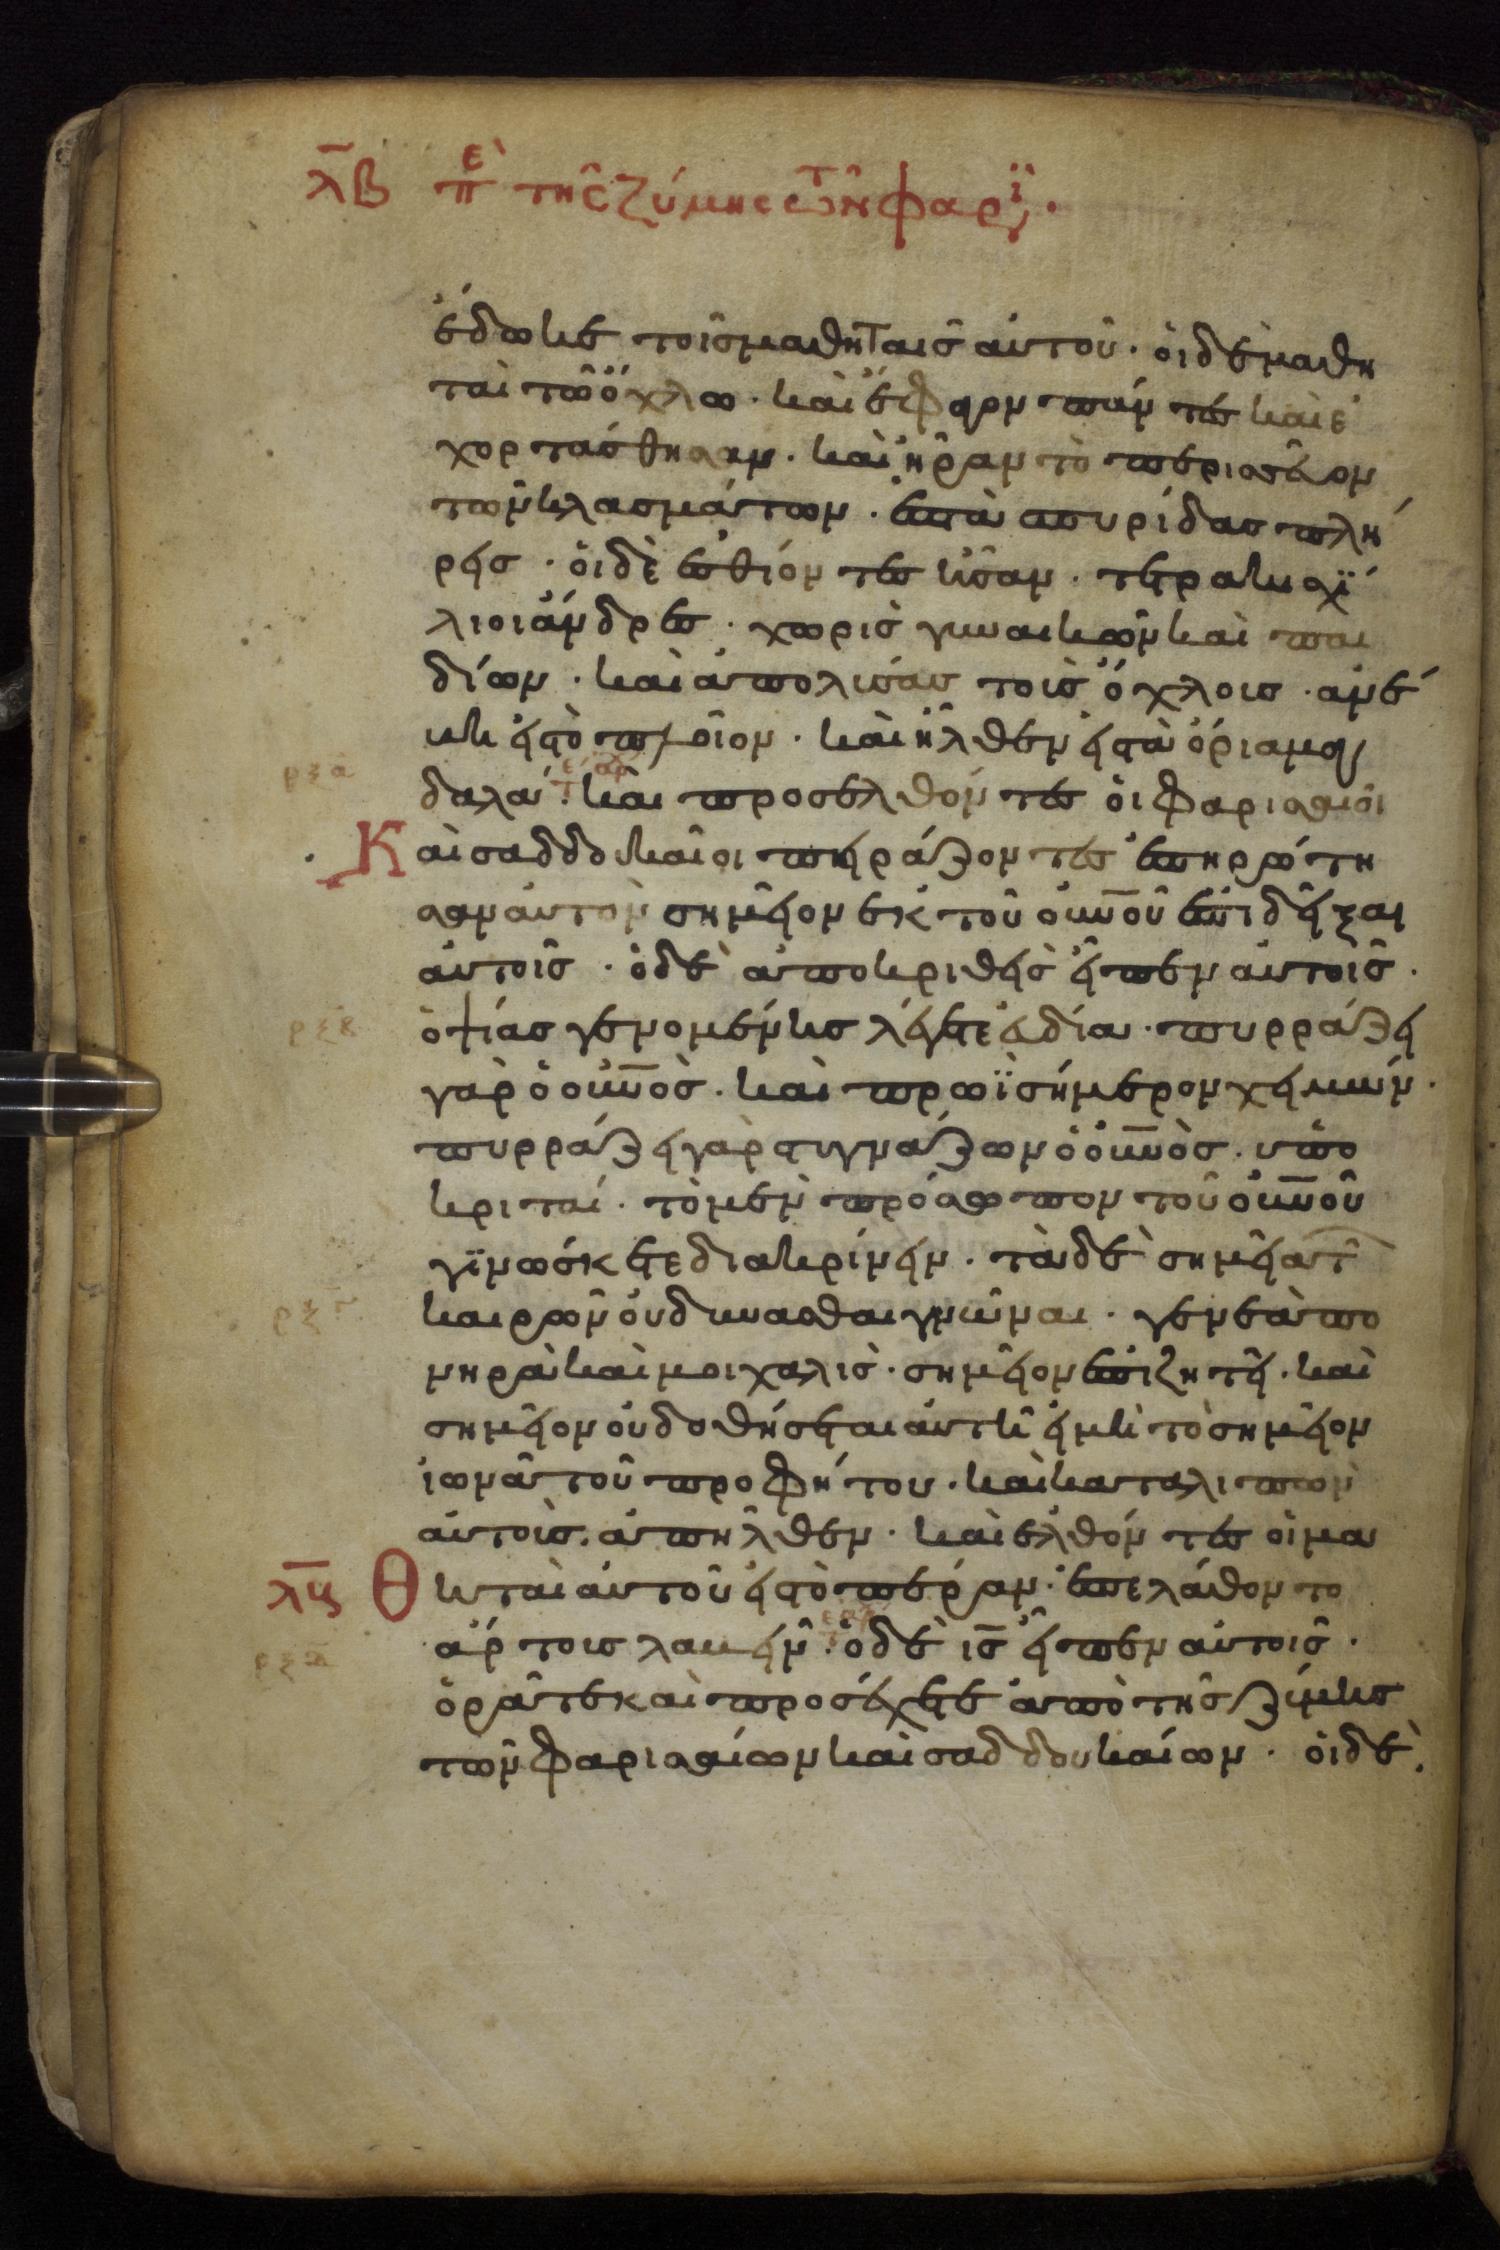 λβ περὶ τῆς ζύμης τῶν φαρι
ἔδωκε τοῖς μαθηταῖς αὐτοῦ · οἱ δὲ μαθη
ταὶ τῶ ὄχλω · καὶ ἔφαγον πάντες καὶ ἐ
χορτάσθησαν · καὶ ἦραν τὸ περισσεῦον
τῶν κλασμάτων · ἑπτὰ σπυρίδας πλή
ρεις · οἱ δὲ ἐσθίοντες ἦσαν · τετρακισχί
λιοι ἄνδρες · χωρὶς γυναικῶν καὶ παι
δίων · καὶ ἀπολύσας τοὺς ὄχλους · ἀνέ
βη εἰς τὸ πλοῖον · καὶ ἦλθεν εἰς τὰ ὅρια μαγ
ρξα
δαλά · τε καὶ προσελθόντες οἱ φαρισαῖοι
Καὶ σαδδουκαῖοι πειράζοντες ἐπηρώτη
σαν αὐτὸν σημεῖον ἐκ τοῦ οὐνοῦ ἐπιδεῖξαι
αὐτοῖς · ὁ δὲ ἀποκριθεὶς εἶπεν αὐτοῖς ·
ρξβ
ὀψίας γενομένης λέγετε εὐδία · πυρράζει
γὰρ ὁ οὐνὸς · καὶ πρωῒ σήμερον χειμών ·
πυρράζει γὰρ στυγνάζων ὁ οὐνὸς · ὑπο
κριταί · τὸ μὲν πρόσωπον τοῦ οὐνοῦ
γϊνώσκετε διακρίνειν · τὰ δὲ σημεῖα τ
ρξγ
καιρῶν οὐ δύνασθαι γνῶναι · γενεὰ πο
νηρὰ καὶ μοιχαλὶς · σημεῖον ἐπιζητεῖ · καὶ
σημεῖον οὐ δοθήσεται αὐτῆ εἰ μὴ τὸ σημεῖον
ἰωνᾶ τοῦ προφήτου · καὶ καταλιπὼν
αὐτοὺς · ἀπῆλθεν · καὶ ἐλθόντες οἱ μα
λγ
Θηταὶ αὐτοῦ εἰς τὸ πέραν · ἐπελάθοντο
ρξδ
ἄρτους λαβεῖν · τε ὁ δὲ ις εἶπεν αὐτοῖς ·
ὁρᾶτε καὶ προσέχετε ἀπὸ τῆς ζύμης
τῶν φαρισαίων καὶ σαδδουκαίων · οἱ δὲ